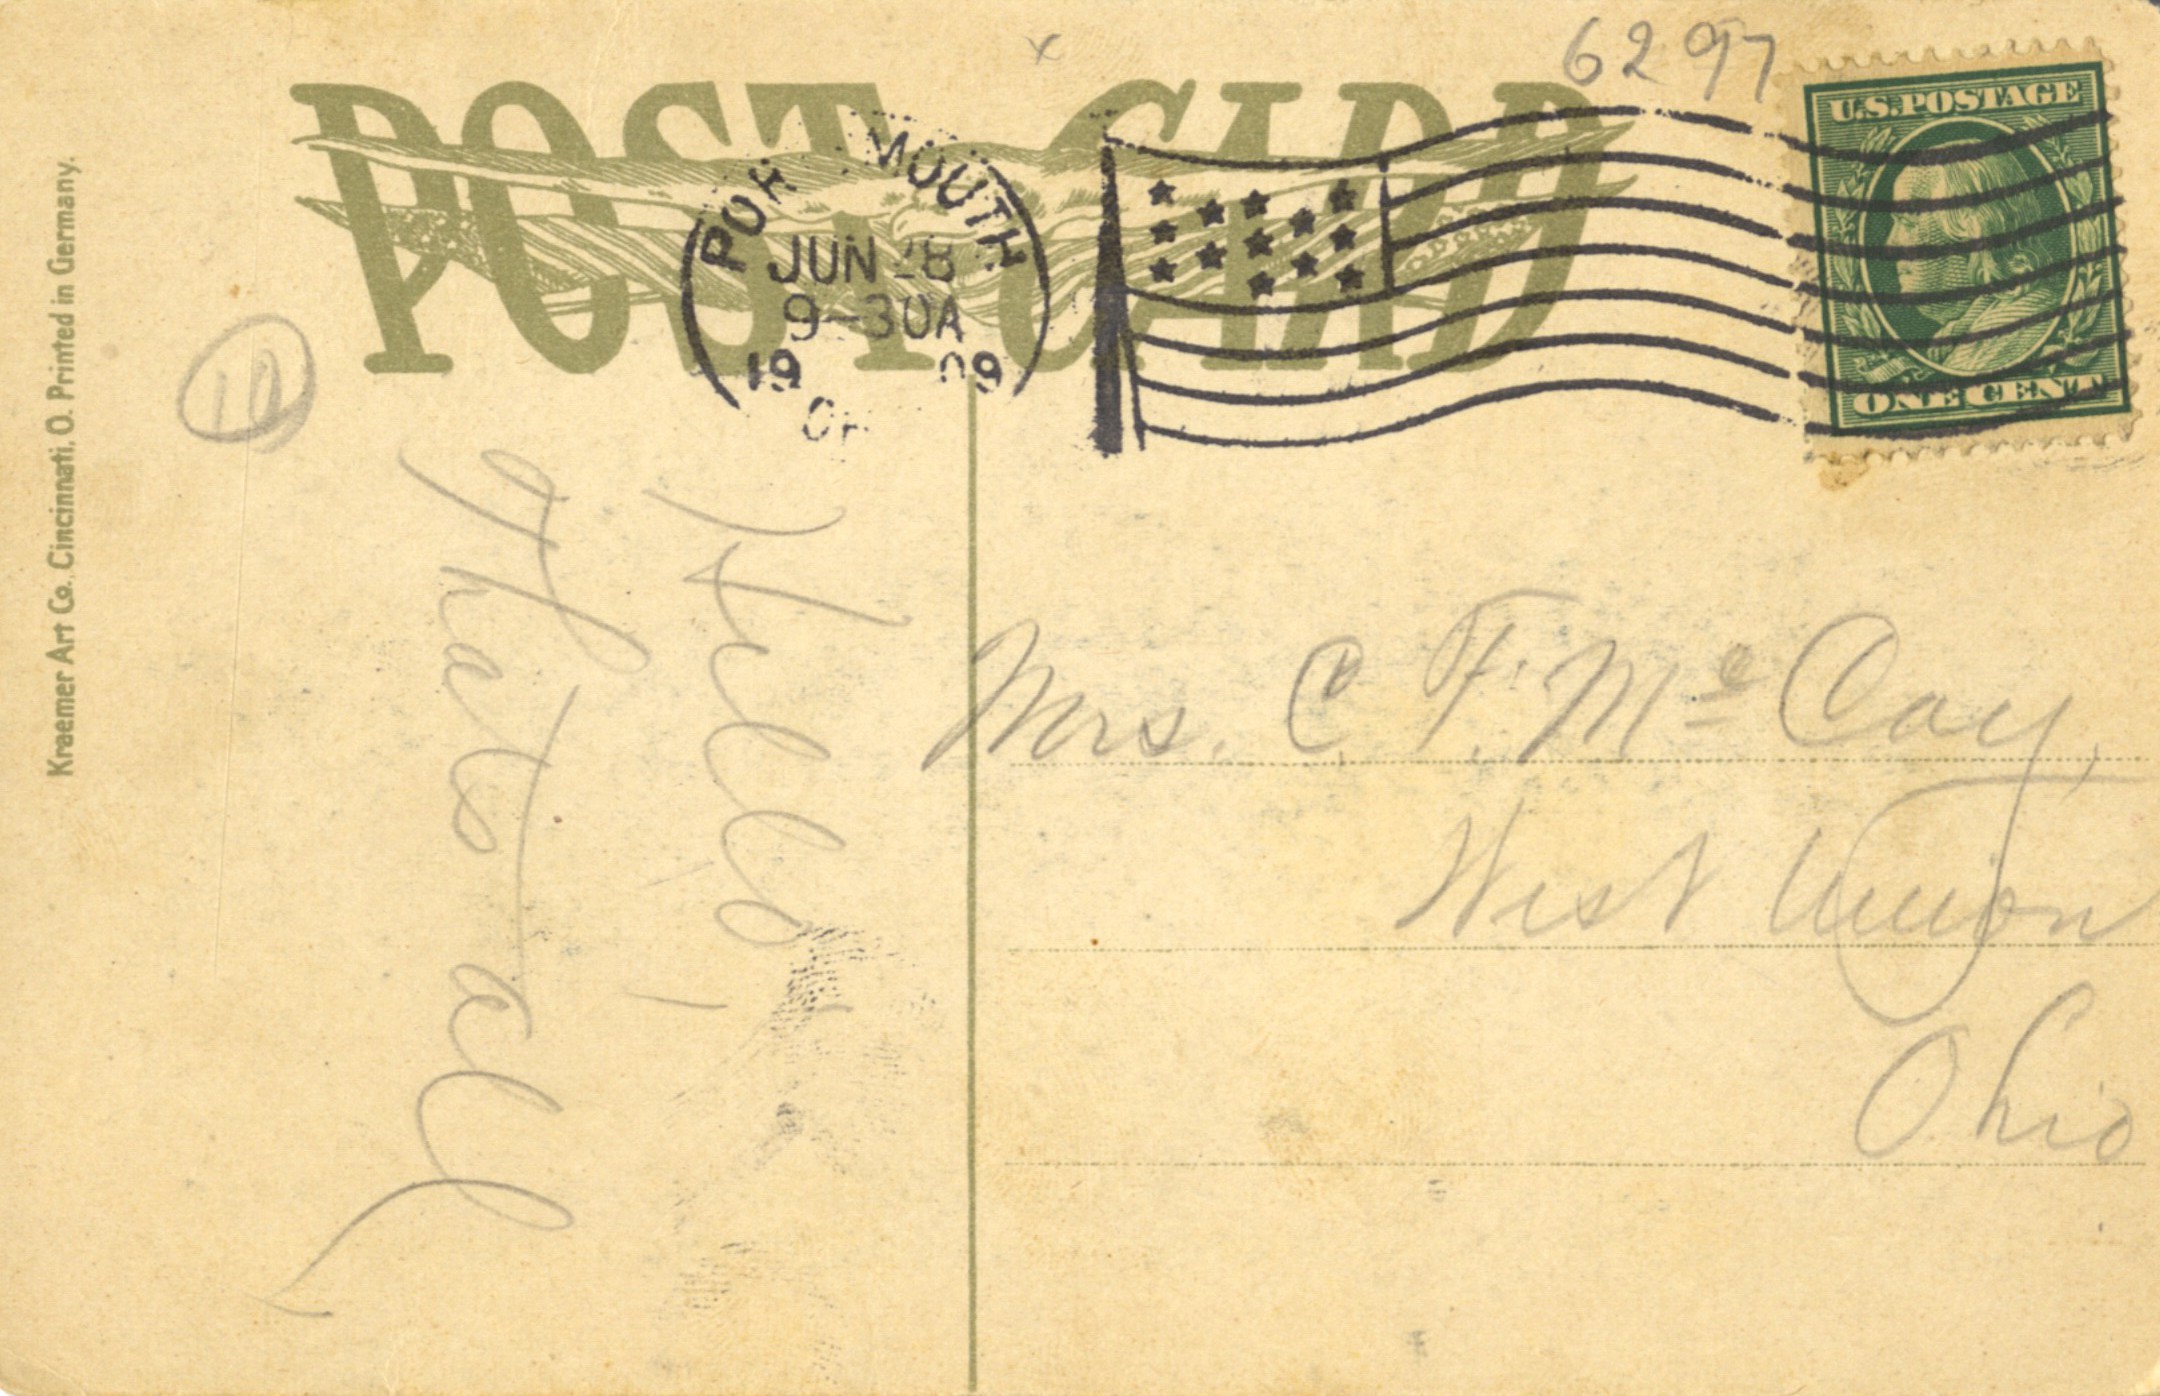 6297
POST CARD
U.S. POSTAGE
ONE CENT
PORTSMOUTH
JUN 28
9-30A
1909
OH
10
Kraemer Art Co. Cincinnati, O. Printed in Germany.
Hello!
Thats all
Mrs. C. F. Mc Coy,
West Union
Ohio